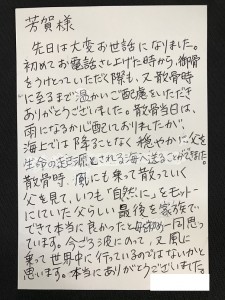 芳賀様
先日は大変お世話になりました。
初めてお電話さし上げた時から、御骨
をうけとっていただく際も、又散骨時
に至るまで温かいご配慮をいただき
ありがとうございました。散骨当日は、
雨になるか心配しておりましたが
海上では降ることなく穏やかに、父を
生命の起源とされる海へ送ることができました。
散骨時、風にも乗って散っていく
父を見て、いつも「自然に」をモットー
にしていた父らしい最後を家族で
できて本当に良かったと母始め一同思っ
ています。今ごろ波にのって、又風に
乗って世界中に行っているのではないかと
思います。本当にありがとうございました。